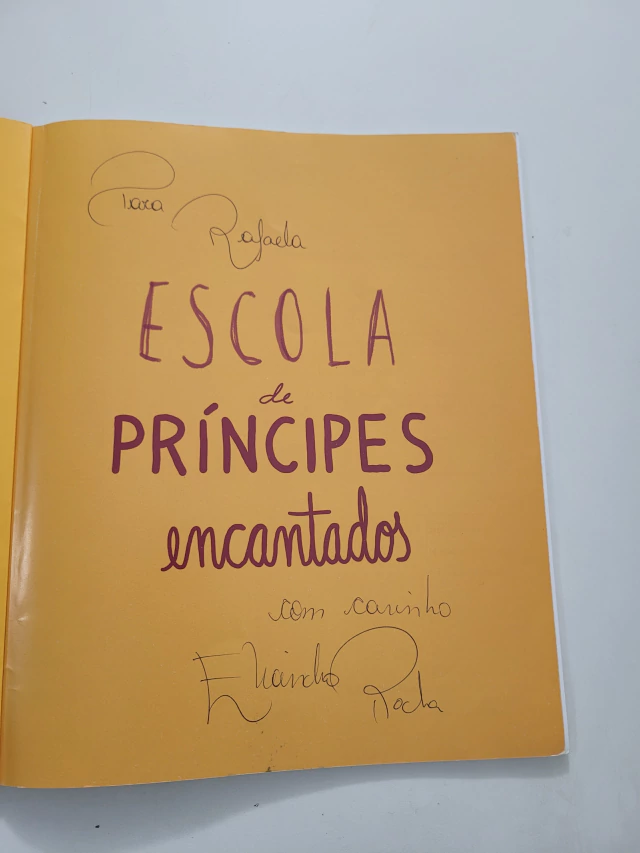 Para Rafaela
ESCOLA
de
PRÍNCIPES
encantados
com carinho
Eliandro Rocha